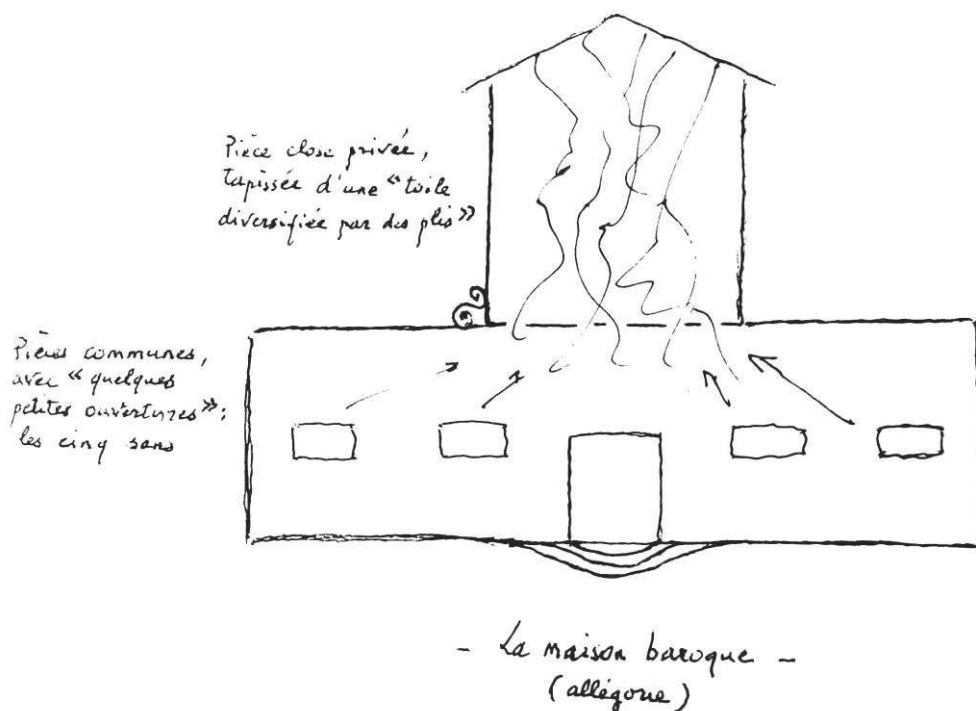 Pièce close privée,
tapissée d'une « toile
diversifiée par des plis »
Pièces communes,
avec « quelques
petites ouvertures » :
les cinq sens
- La maison baroque -
(allégorie)